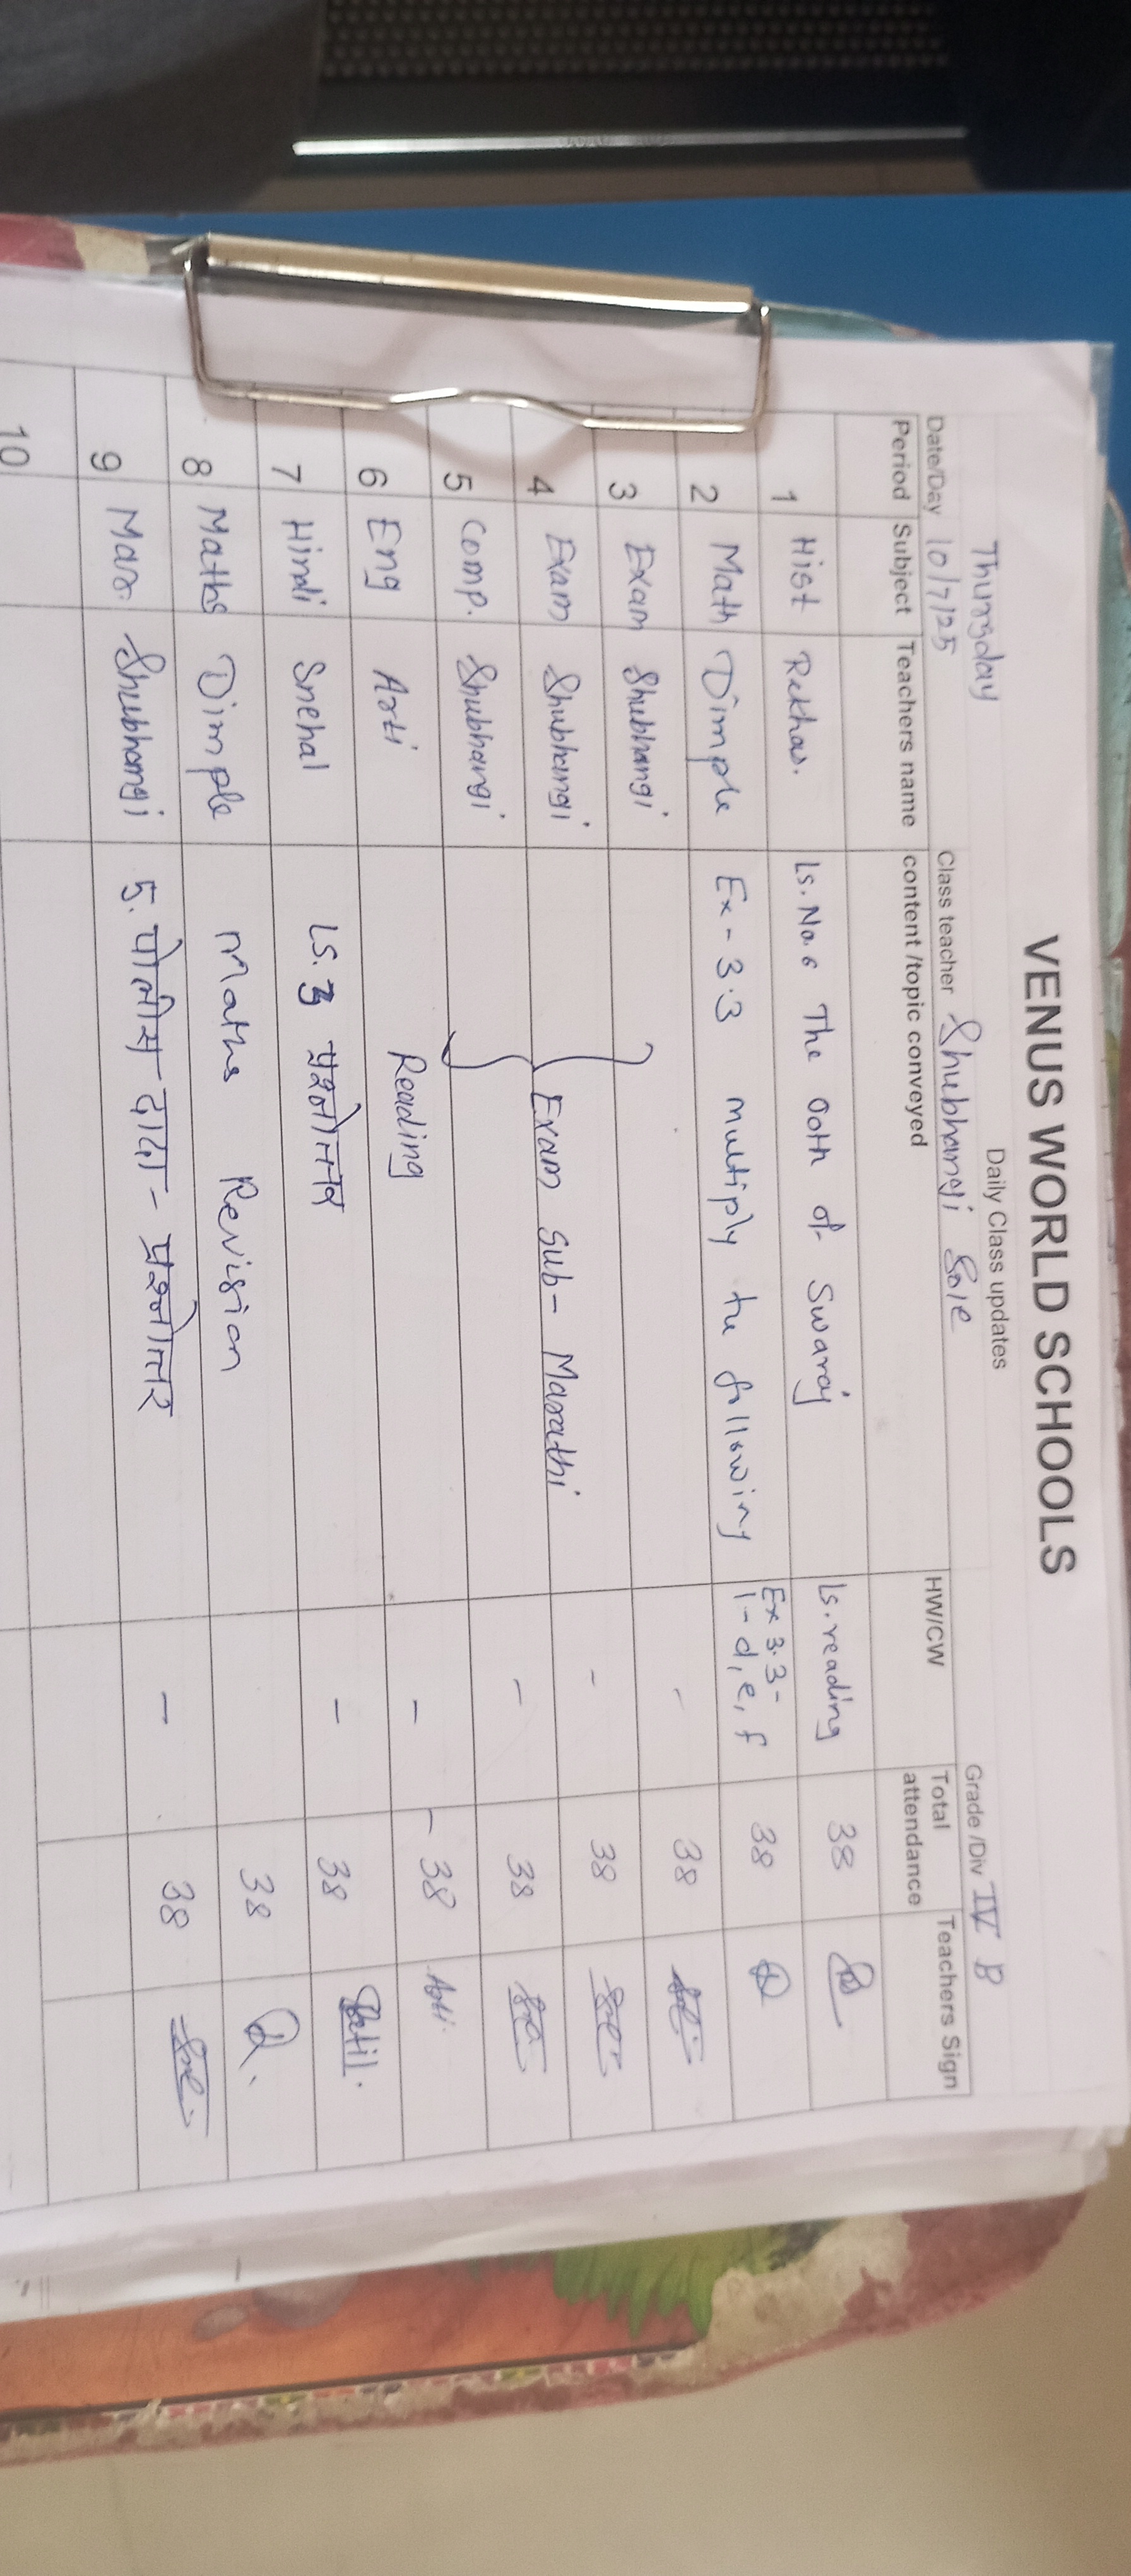 VENUS WORLD SCHOOLS
Daily Class updates
Thursday
Date/Day 10/7/25 Class teacher Shubhangi Sole Grade /Div IV B
Period Subject Teachers name content /topic conveyed HW/CW Total attendance Teachers Sign
1 Hist Rekha s. Ls. No. 6 The Oath of Swaraj Ls. reading 38
2 Math Dimple Ex - 3.3 multiply the following Ex 3.3 - 1 - d, e, f 38
3 Exam Shubhangi - 38
4 Exam Shubhangi Exam Sub - Marathi - 38
5 Comp. Shubhangi - 38
6 Eng Arti Reading - 38 Arti.
7 Hindi Snehal Ls. 3 प्रश्नोत्तर - 38 Patil.
8 Maths Dimple Maths Revision 38
9 Mar. Shubhangi 5. पोलीस दादा - प्रश्नोत्तर - 38
10